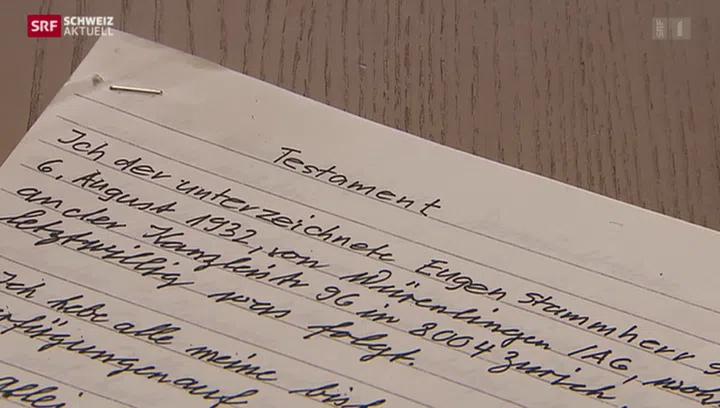 SRF SCHWEIZ
AKTUELL
SRF 1
Testament
Ich der unterzeichnete Eugen Stammherr
6. August 1932, von Würenlingen /AG,
an der Kanzleistr 96 in 8004 Zürich,
letztwillig was folgt.
Ich hebe alle meine
auf